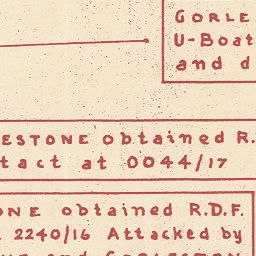 GORLE
U-Boat
and d
ESTONE obtained R.
tact at 0044/17
ONE obtained R.D.F.
2240/16 Attacked by
and GORLESTON